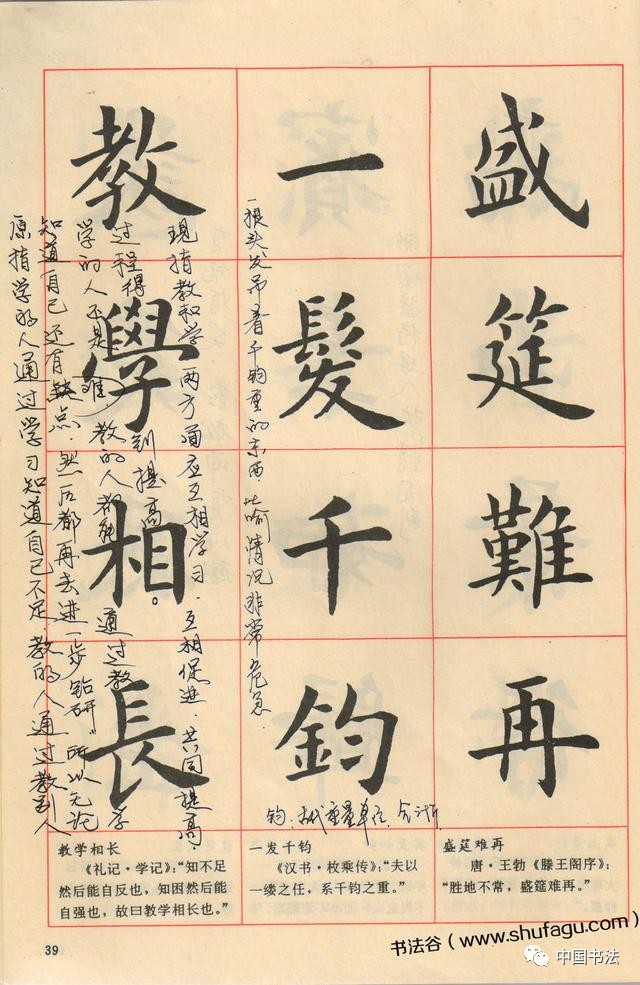 盛筵難再
一髮千鈞
教學相長
一根头发吊着千钧重的东西 比喻情况非常危急.
现指教和学两方面应互相学习.互相促进.共同提高.
过程得到提高。通过教学
学的人不是 难 教的人都能
知道自己还有缺点.然后都再去进一步钻研"所以无论
原指学的人通过学习知道自己不足.教的人通过教别人
钧:古代重量单位.
教学相长
《礼记·学记》:“知不足
然后能自反也,知困然后能
自强也,故曰教学相长也。”
一发千钧
《汉书·枚乘传》:“夫以
一缕之任,系千钧之重。”
盛筵难再
唐·王勃《滕王阁序》:
“胜地不常,盛筵难再。”
39
书法谷(www.shufagu.com)
中国书法